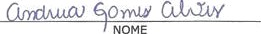 Andrua Gomes Alves
NOME